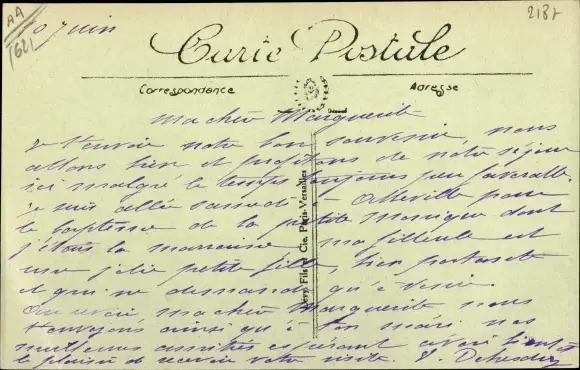 AA
(62)
10 Juin
2187
Carte Postale
Correspondance
Adresse
Ma chère Marguerite
Je t'envoie notre bon souvenir, nous
allons bien et profitons de notre séjour
ici malgré le temps toujours peu favorable.
Je suis allée samedi à pour
le baptême de la petite Monique dont
j'étais la marraine ma filleule est
une jolie petite fille, bien portante
et qui ne demande qu'à
Au revoir ma chère Marguerite nous
t'envoyons ainsi qu'à ton mari nos
meilleures amitiés espérant avoir bientôt
le plaisir de recevoir votre visite.
Fils et Cie, Paris-Versailles